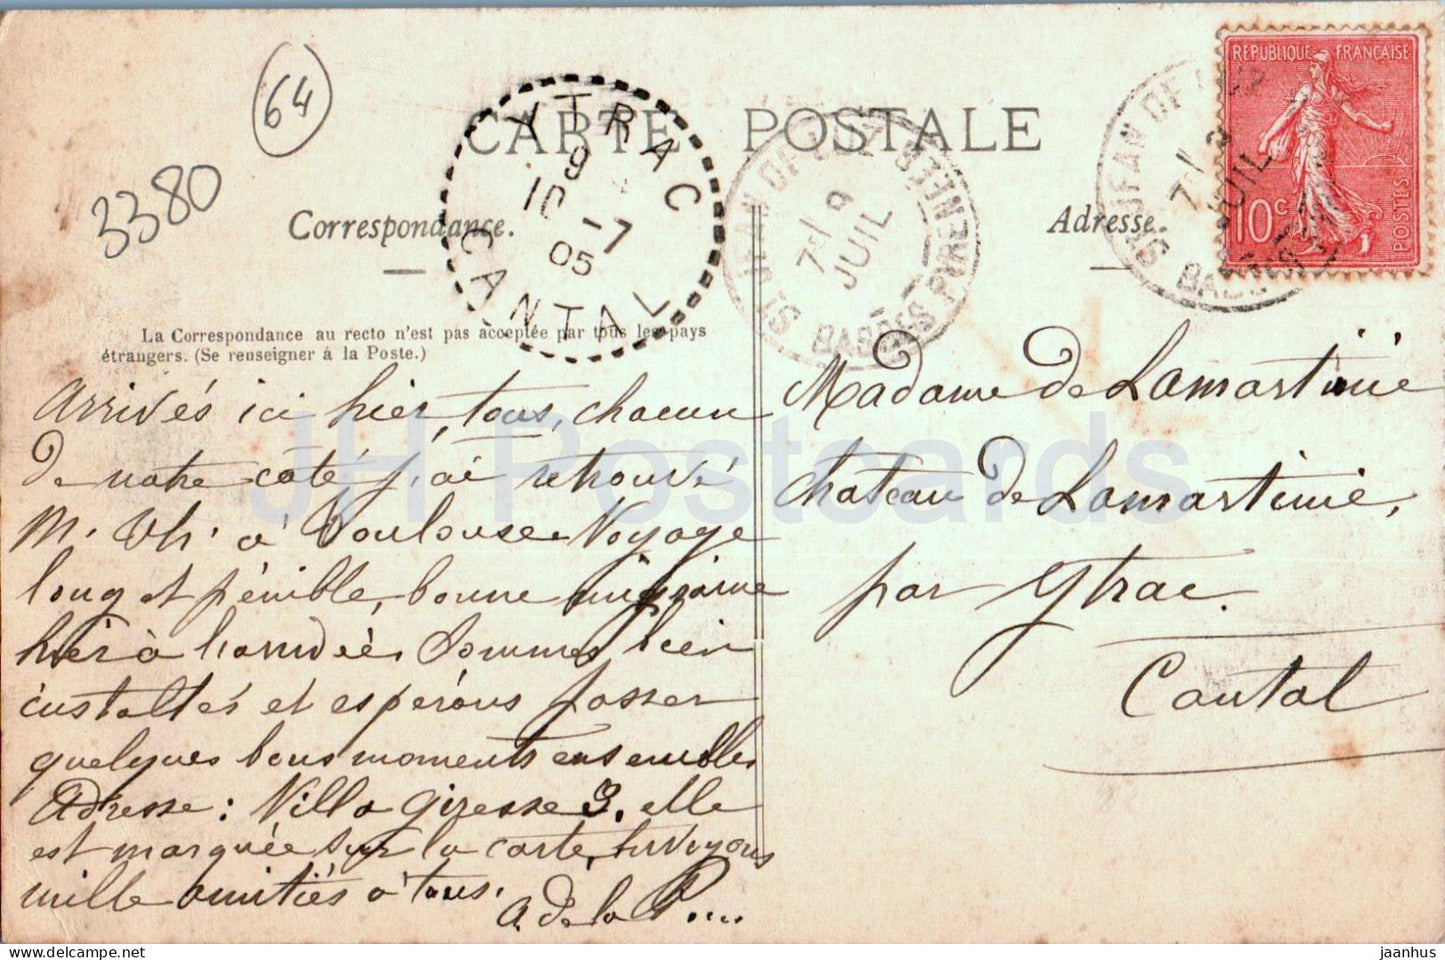 64
3380
CARTE POSTALE
Correspondance.
Adresse.
YTRAC
9
10 -7
05
CANTAL
JEAN DE LUZ
7-1 9
JUIL
BASSES PYRENEES
REPUBLIQUE FRANÇAISE
10c
POSTES
La Correspondance au recto n'est pas acceptée par tous les pays
étrangers. (Se renseigner à la Poste.)
Arrivés ici hier, tous, chacun
de notre côté j'ai retrouvé
à Toulouse. Voyage
long et pénible, bonne migraine
hier à l'arrivée. Sommes bien
installés et espérons passer
quelques bons moments ensembles
Adresse: Villa Giresse 3. elle
est marquée sur la carte,
mille amitiés à tous.
A. de la P....
Madame de Lamartinie
Chateau de Lamartinie,
par Ytrac.
Cantal
JH Postcards
jaanhus